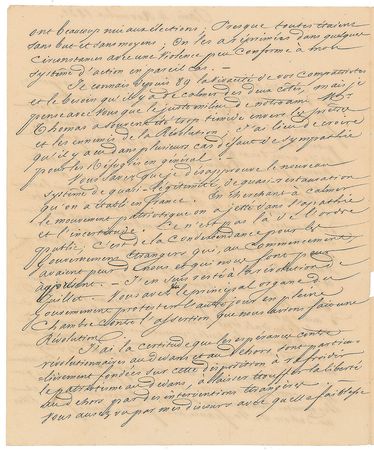 ont beaucoup nui aux élections ; Presque toutes étaient
sans but et sans moyens ; On les a réprimées dans quelques
circonstances avec une violence peu conforme à mon
système d'action en pareil cas. —
Je connais depuis 89 la vivacité de vos compatriotes
et le besoin qu'il y a de calmer des deux côtés, mais je
pense avec vous que le juste milieu de notre ami Mr
Thomas a souvent été trop timide envers les
et les ennemis de la Révolution ; J'ai lieu de croire
qu'il y a eu dans plusieurs cas défaut de sympathie
pour les Réfugiés en général
Vous savez que je désapprouve le nouveau
système de quasi-légitimité, de quasi-restauration
qu'on a établi en france. En cherchant à calmer
le mouvement patriotique on a jetté dans l'apathie
et l'incertitude. Ce n'est pas là de l'ordre
public, c'est de la condescendance pour les
Gouvernements étrangers qui, au commencement,
avaient peur de nous et qui nous font peur
à présent. — J'en suis resté à la révolution de
Juillet. Vous avez vu le principal organe du
Gouvernement protester l'autre jour en pleine
Chambre contre l'assertion que nous avions fait une
Révolution
J'ai la certitude que les espérances contre
révolutionnaires au dedans et au dehors sont particu-
lièrement fondées sur cette disposition à refroidir
le patriotisme au dedans, à laisser étouffer la liberté
au dehors par des interventions étrangères
Vous aurez vu par mes discours avec quelle